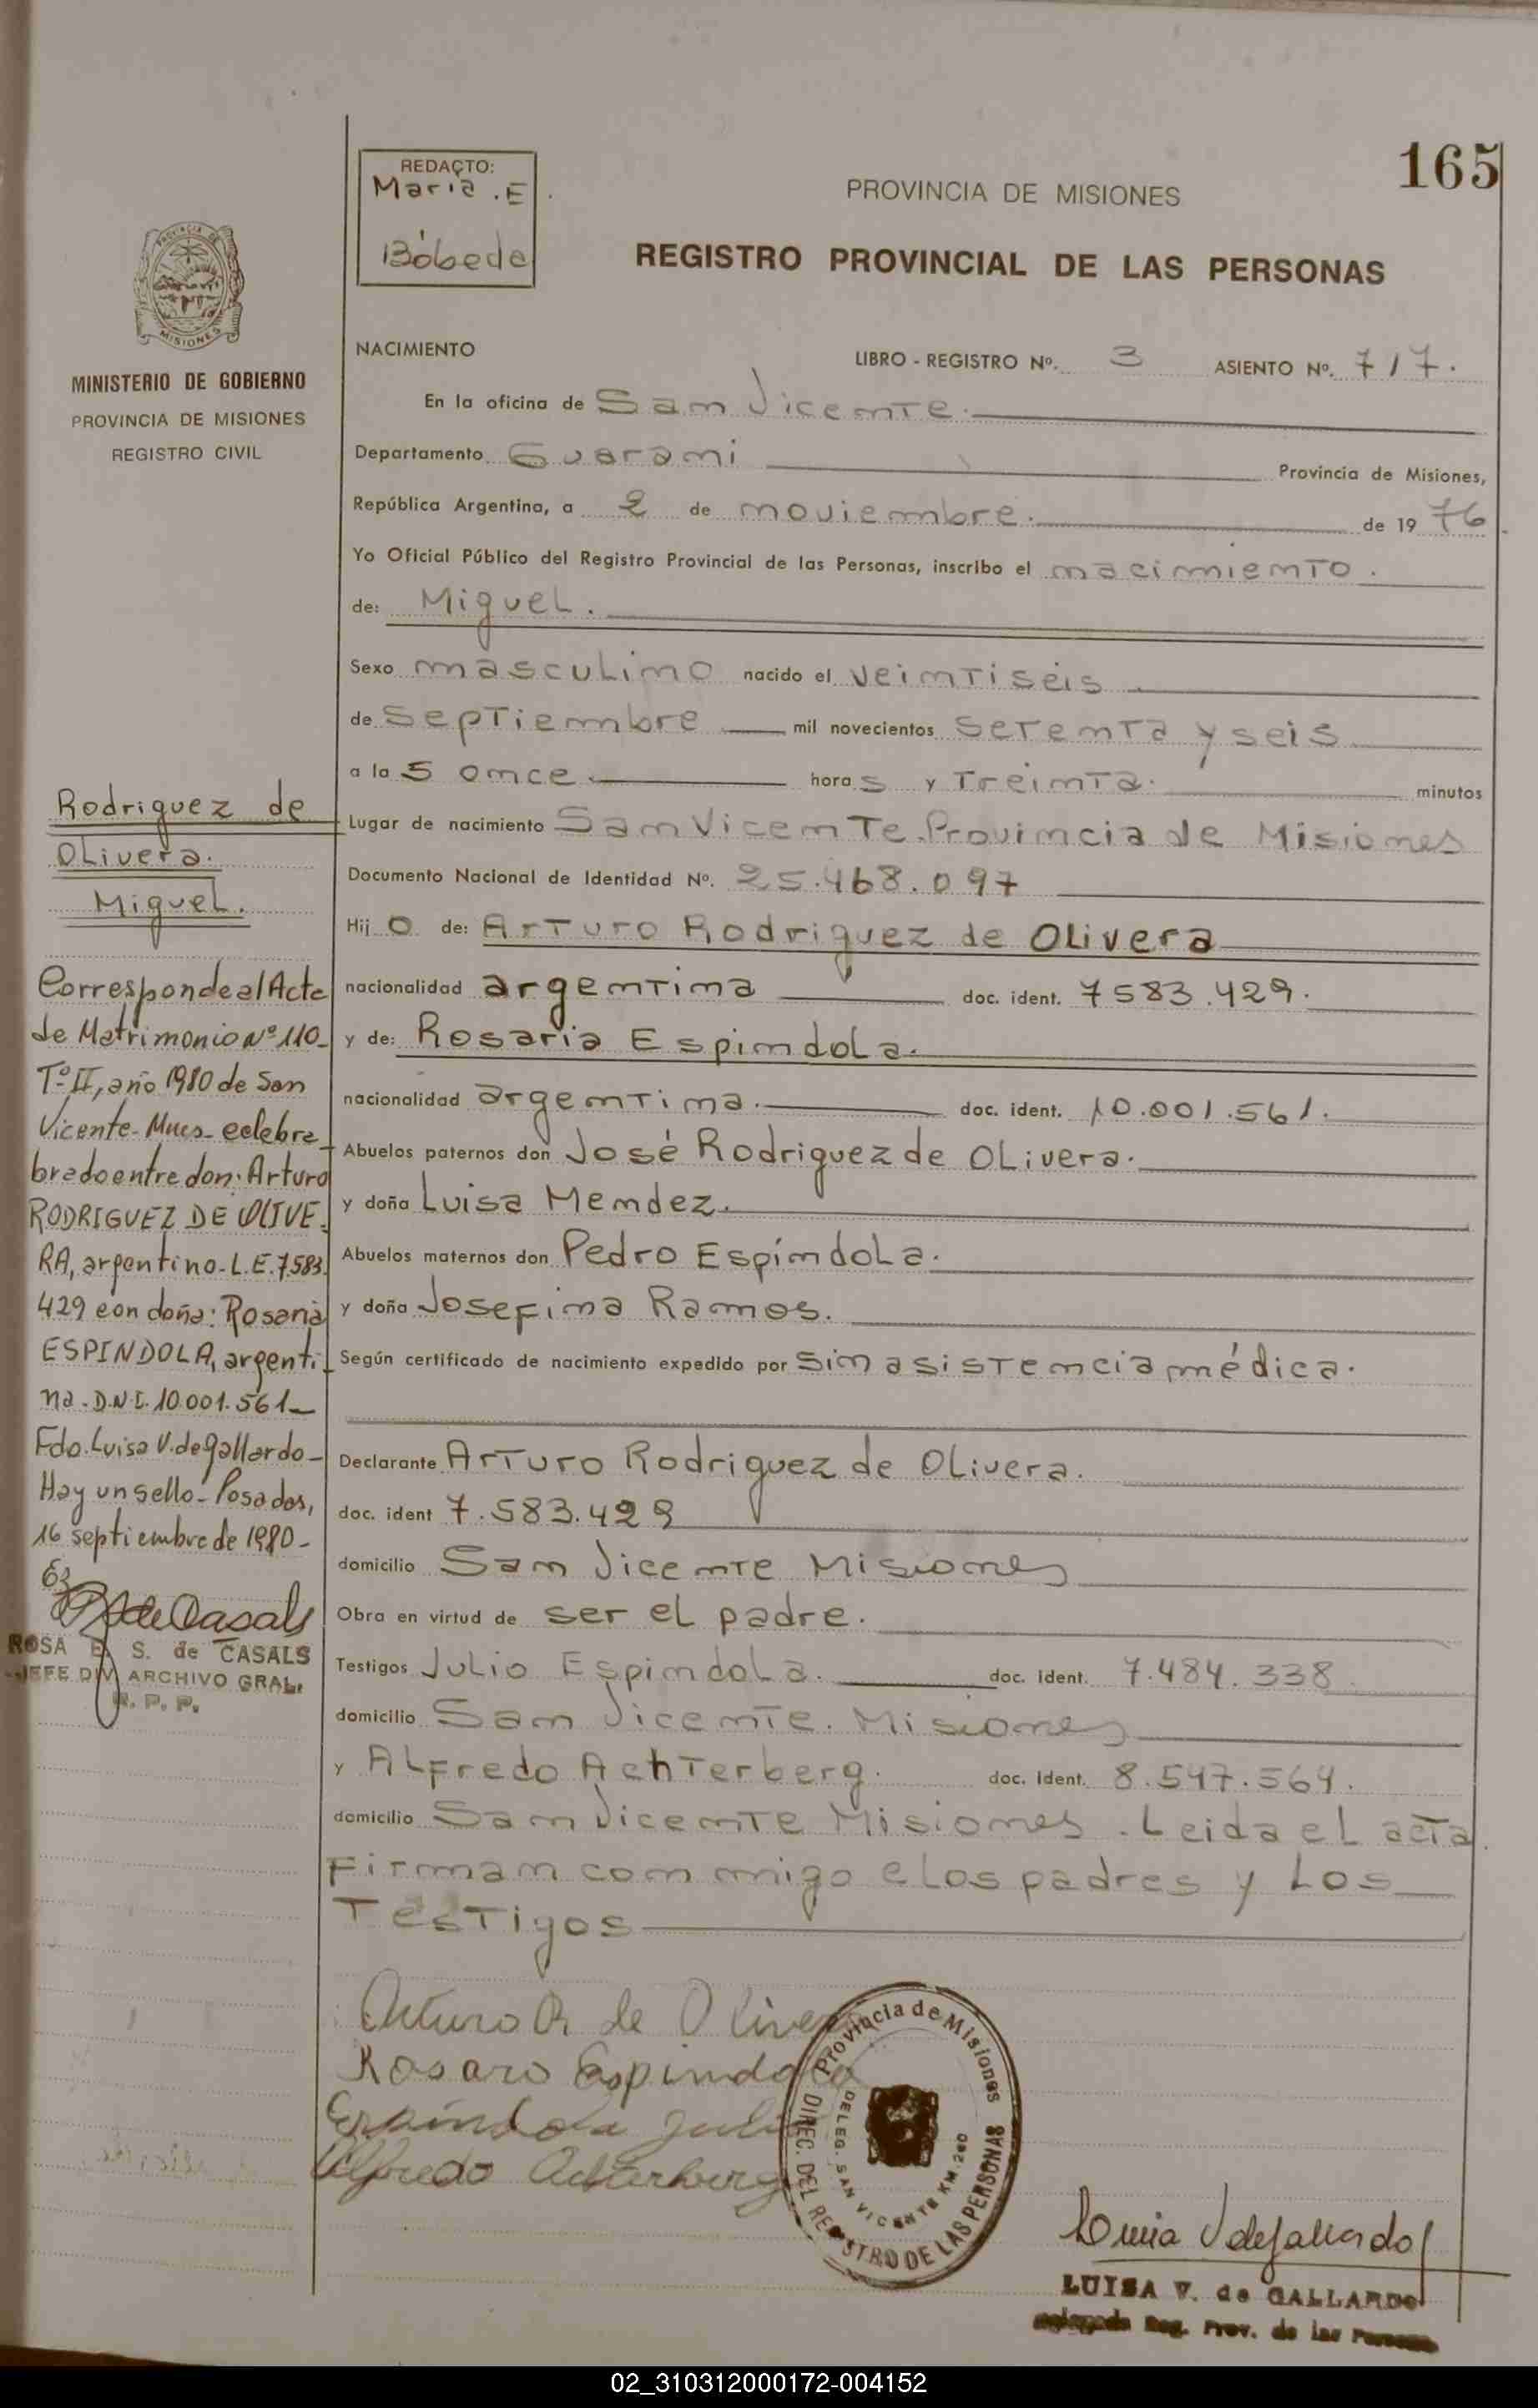 165
REDACTO:
Maria . E
Bóbeda
PROVINCIA DE MISIONES
REGISTRO PROVINCIAL DE LAS PERSONAS
PROVINCIA DE
MISIONES
MINISTERIO DE GOBIERNO
PROVINCIA DE MISIONES
REGISTRO CIVIL
NACIMIENTO
LIBRO - REGISTRO Nº. 3 ASIENTO Nº. 717.
En la oficina de San Vicente.
Departamento Guarani Provincia de Misiones,
República Argentina, a 2 de noviembre. de 1976
Yo Oficial Público del Registro Provincial de las Personas, inscribo el nacimiento.
de: Miguel.
Sexo masculino nacido el veintiséis
de septiembre mil novecientos setenta y seis
a la s once. hora s y treinta. minutos
Lugar de nacimiento San Vicente. Provincia de Misiones
Documento Nacional de Identidad Nº. 25.468.097
Hij o de: Arturo Rodriguez de Olivera
nacionalidad argentina doc. ident. 7583.429.
y de: Rosaria Espindola.
nacionalidad argentina. doc. ident. 10.001.561.
Abuelos paternos don José Rodriguez de Olivera.
y doña Luisa Mendez.
Abuelos maternos don Pedro Espíndola.
y doña Josefina Ramos.
Según certificado de nacimiento expedido por sin asistencia médica.
Declarante Arturo Rodriguez de Olivera.
doc. ident 7.583.429
domicilio San Vicente Misiones
Obra en virtud de ser el padre.
Testigos Julio Espindola. doc. ident. 7.484.338
domicilio San Vicente. Misiones
y Alfredo Achterberg. doc. ident. 8.547.564.
domicilio San Vicente Misiones. Leida el acta
Firman con migo e los padres y los
Testigos
Rodriguez de
Olivera.
Miguel.
Corresponde al Acta
de Matrimonio Nº 110_
Tº II, año 1980 de San
Vicente-Mnes- celebra_
brado entre don: Arturo
RODRIGUEZ DE OLIVE_
RA, argentino-L.E.7.583.
429 con doña: Rosaria
ESPINDOLA, argenti_
na-D.N.I. 10.001.561_
Fdo. Luisa V. de Gallardo-
Hay un sello-Posadas,
16 septiembre de 1980-
de Casals
ROSA E. S. de CASALS
JEFE DIV. ARCHIVO GRAL.
R. P. P.
Arturo R de Olivera
Rosaro Espindola
Espíndola Julio
Alfredo Achterberg
Provincia de Misiones
DIREC. DEL REGISTRO DE LAS PERSONAS
DELEG. SAN VICENTE KM. 260
Luisa V de Gallardo
LUISA V. de GALLARDO
Delegada Reg. Prov. de las Personas
02_310312000172-004152